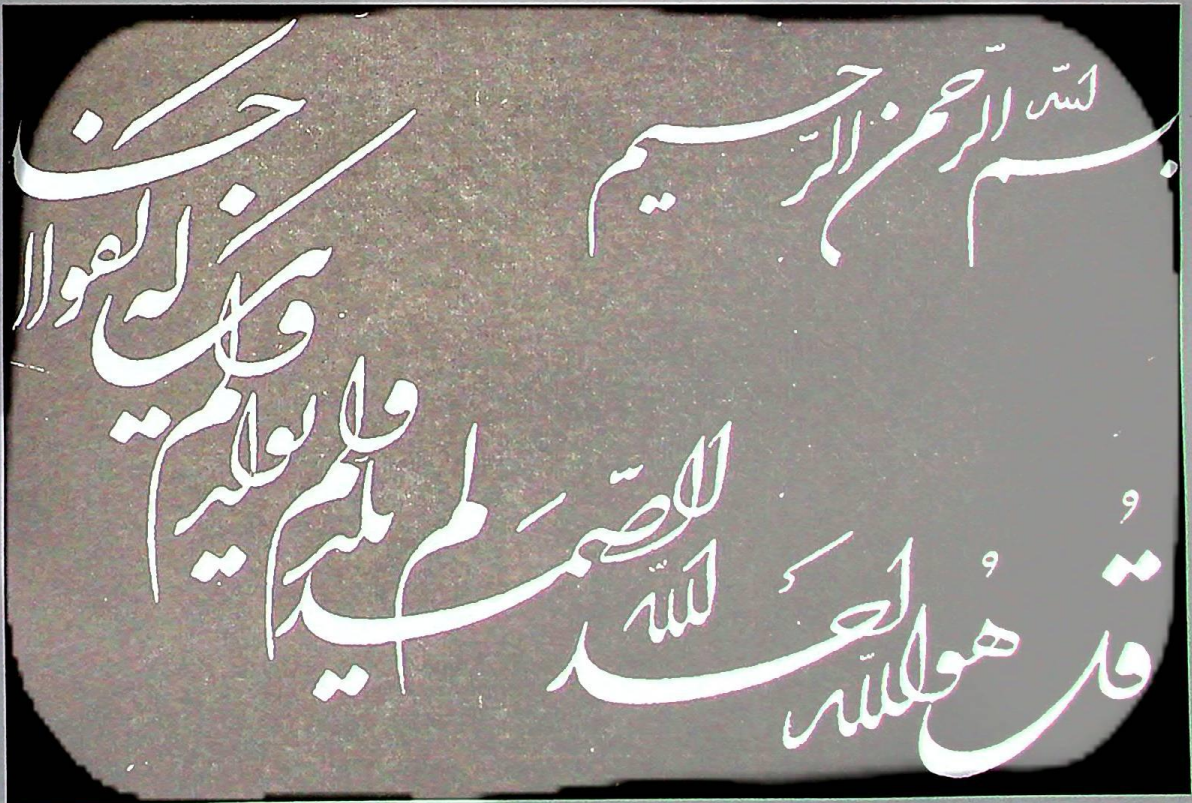 بسم الله الرّحمن الرّحیم
قُل هُو الله احَد الله الصّمَد لم یلد ولم یولد ولم یکن له کفوا احد